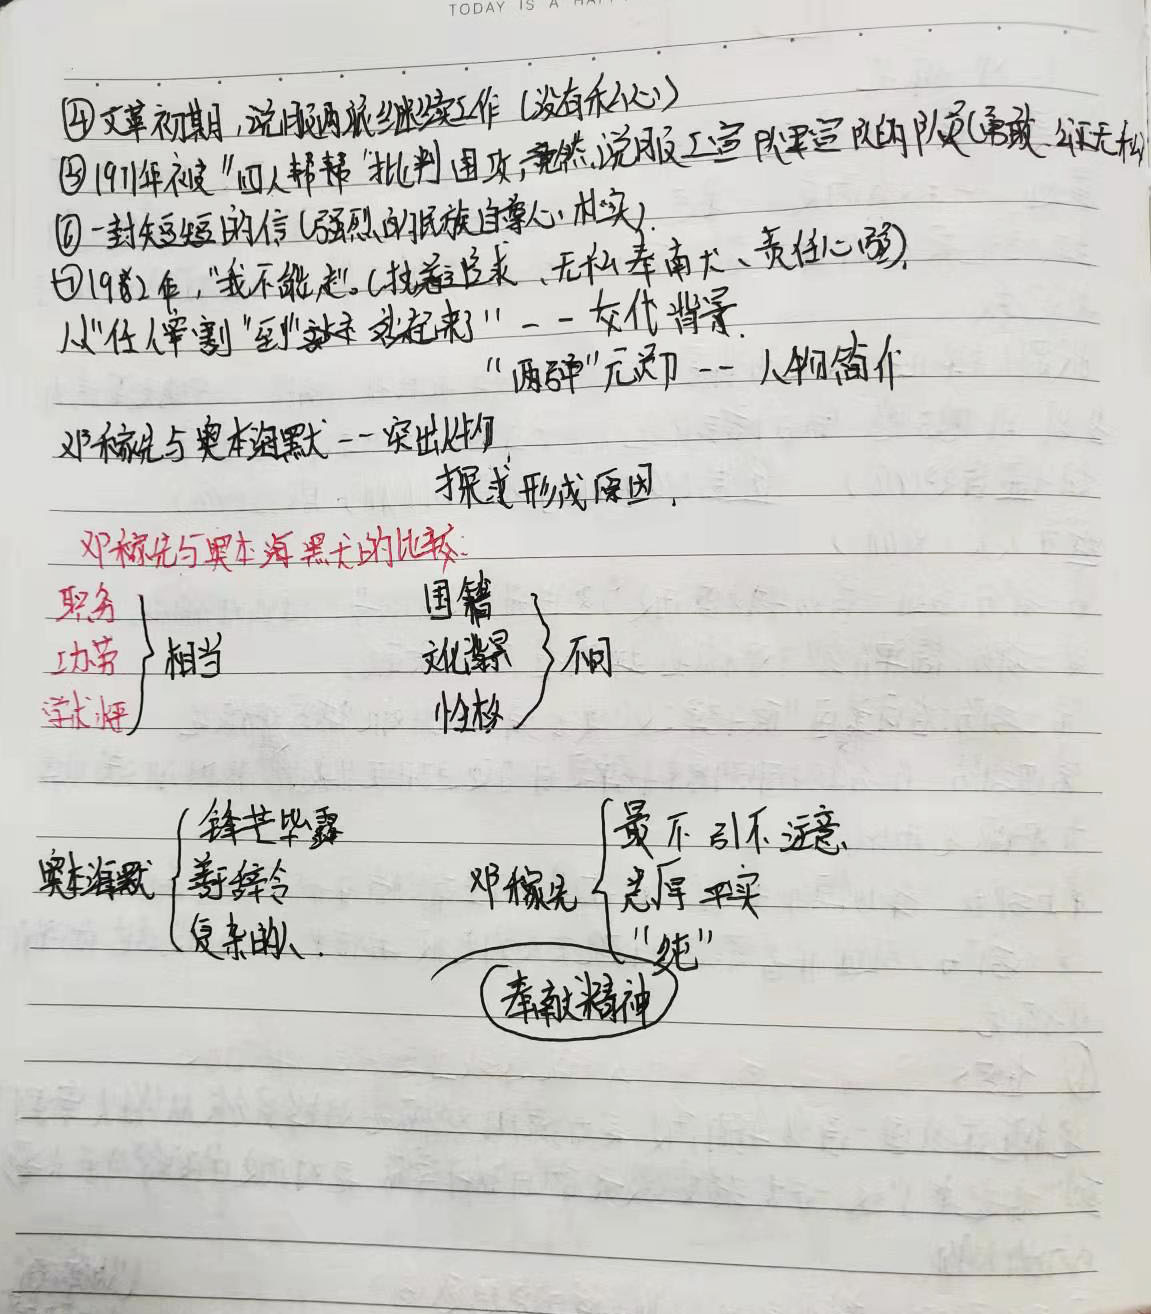 TODAY IS A HAPP
④文革初期，说服两派继续工作（没有私心）
⑤1971年被"四人帮帮"批判围攻，竟然说服工宣队军宣队的队员（勇敢、公正无私）
⑥一封短短的信（强烈的民族自尊心、朴实）
⑦1982年，"我不能走"。（执着追求、无私奉献、责任心强）.
从"任人宰割"到"站起来了"--交代背景.
"两弹"元勋--人物简介
邓稼先与奥本海默--突出性
探求形成原因.
邓稼先与奥本海默的比较:
职务
功劳
学术
相当
国籍
文化背景
性格
不同
奥本海默
锋芒毕露
善于辞令
复杂的人.
邓稼先
最不引不注意.
忠厚平实
"纯"
奉献精神